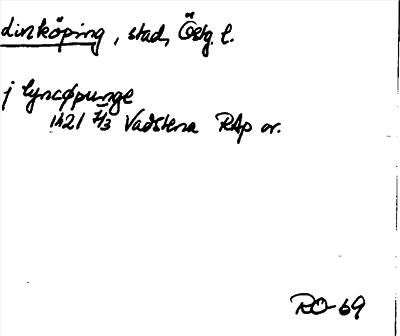 Linköping, stad, Östg. l.
j lyncøpunge
1421 7/3 Vadstena RAp or.
RO-69